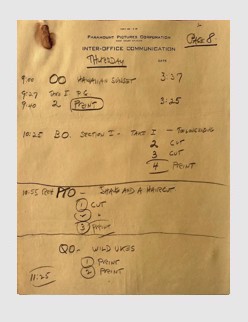 PAGE 8
PARAMOUNT PICTURES CORPORATION
INTER-OFFICE COMMUNICATION
THURSDAY
DATE
9:00 OO HAWAIIAN SUNSET 3:37
9:27 TAKE 1 F.S.
9:40 2 PRINT 3:25
10:25 BO. SECTION I - TAKE I -
2 CUT
3 CUT
4 PRINT
10:55 PTO - SHAVE AND A HAIRCUT
1 CUT
2 "
3 PRINT
QO - WILD UKES
1 PRINT
2 PRINT
11:25